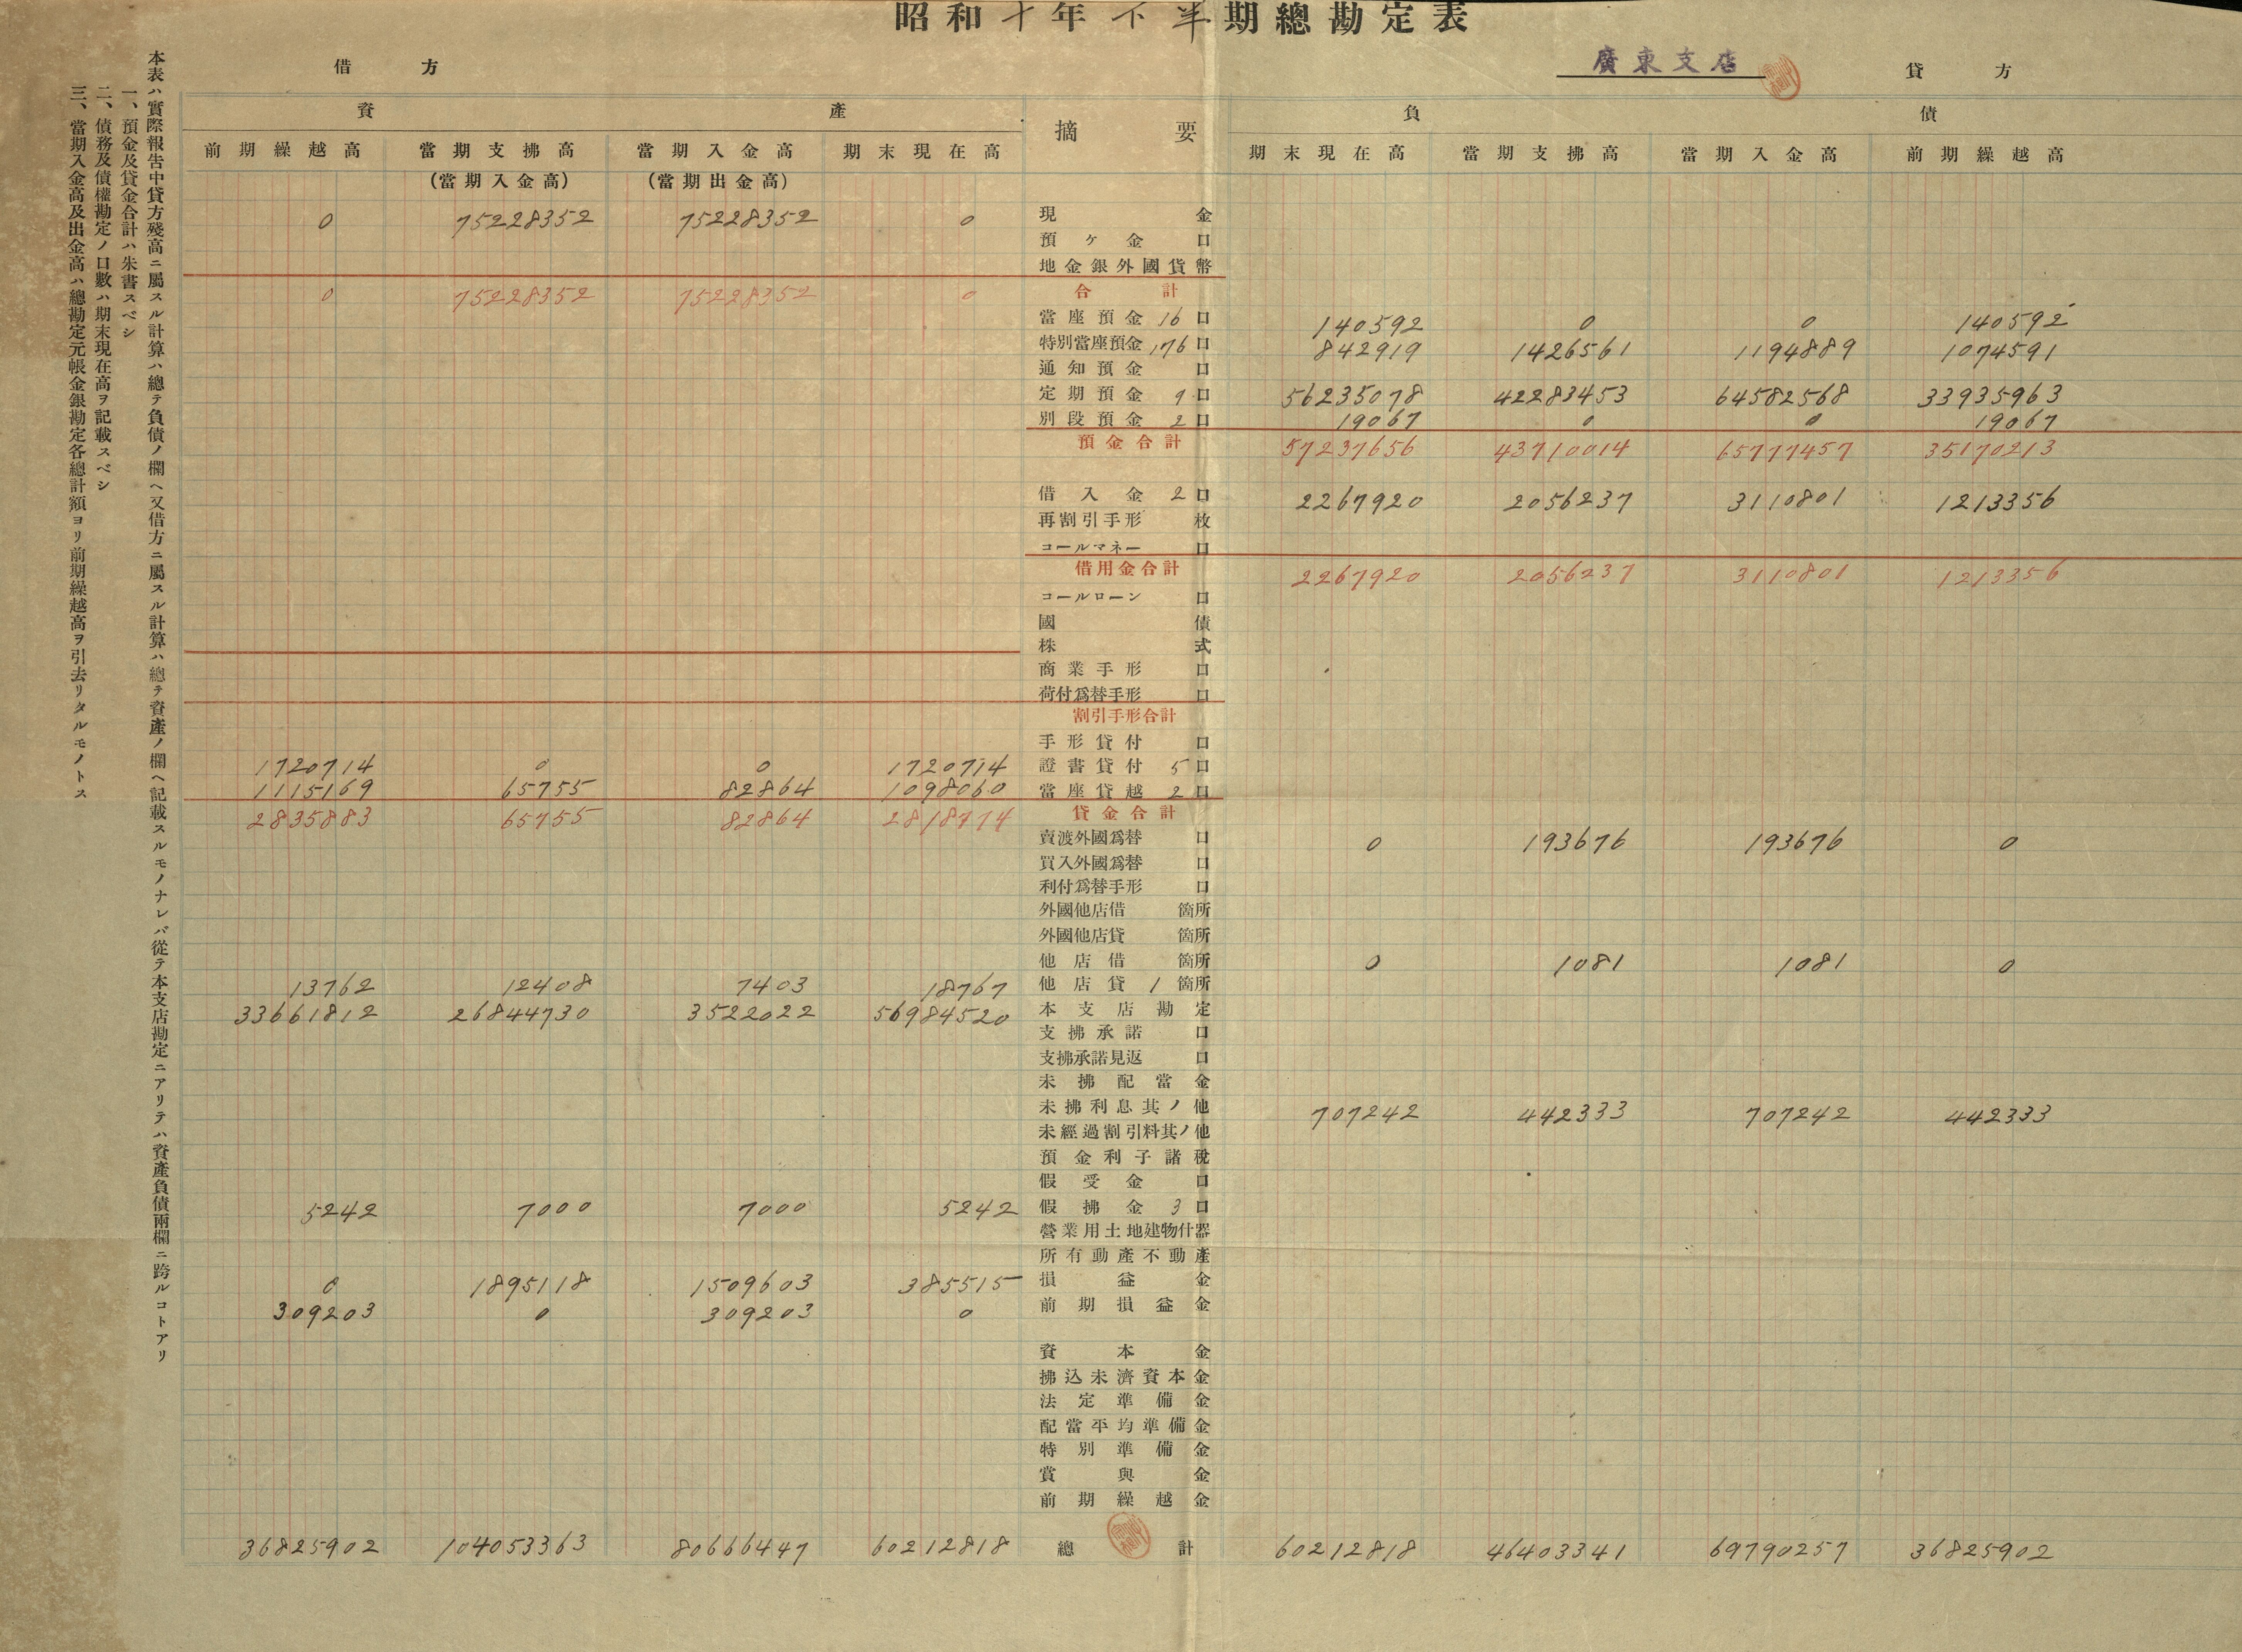 昭和十年下半期總勘定表
廣東支店
借方
貸方
資產
摘要
負債
前期繰越高 當期支拂高 當期入金高 期末現在高 期末現在高 當期支拂高 當期入金高 前期繰越高
(當期入金高) (當期出金高)
0 75228352 75228352 0 現金
預ケ金 口
地金銀外國貨幣
0 75228352 75228352 0 合計
當座預金 16 口 140592 0 0 140592
特別當座預金 176 口 842919 1426561 1194889 1074591
通知預金 口
定期預金 9 口 56235078 42283453 64582568 33935963
別段預金 2 口 19067 0 0 19067
預金合計 57237656 43710014 65777457 35170213
借入金 2 口 2267920 2056237 3110801 1213356
再割引手形 枚
コールマネー 口
借用金合計 2267920 2056237 3110801 1213356
コールローン 口
國債
株式
商業手形 口
荷付爲替手形 口
割引手形合計
手形貸付 口
1720714 0 0 1720714 證書貸付 5 口
1115169 65755 82864 1098060 當座貸越 2 口
2835883 65755 82864 2818774 貸金合計
賣渡外國爲替 口 0 193676 193676 0
買入外國爲替 口
利付爲替手形 口
外國他店借 箇所
外國他店貸 箇所
他店借 箇所 0 1081 1081 0
13762 12408 7403 18767 他店貸 1 箇所
33661812 26844730 3522022 56984520 本支店勘定
支拂承諾 口
支拂承諾見返 口
未拂配當金
未拂利息其ノ他 707242 442333 707242 442333
未經過割引料其ノ他
預金利子諸稅
假受金 口
5242 7000 7000 5242 假拂金 3 口
營業用土地建物什器
所有動產不動產
0 1895118 1509603 385515 損益金
309203 0 309203 0 前期損益金
資本金
拂込未濟資本金
法定準備金
配當平均準備金
特別準備金
賞與金
前期繰越金
36825902 104053363 80666447 60212818 總計 60212818 46403341 69790257 36825902
本表ハ實際報告中貸方殘高ニ屬スル計算ハ總テ負債ノ欄ヘ又借方ニ屬スル計算ハ總テ資產ノ欄ヘ記載スルモノナレバ從テ本支店勘定ニアリテハ資產負債兩欄ニ跨ルコトアリ
一、預金及貸金合計ハ朱書スベシ
二、債務及債權勘定ノ口數ハ期末現在高ヲ記載スベシ
三、當期入金高及出金高ハ總勘定元帳金銀勘定各總計額ヨリ前期繰越高ヲ引去リタルモノトス